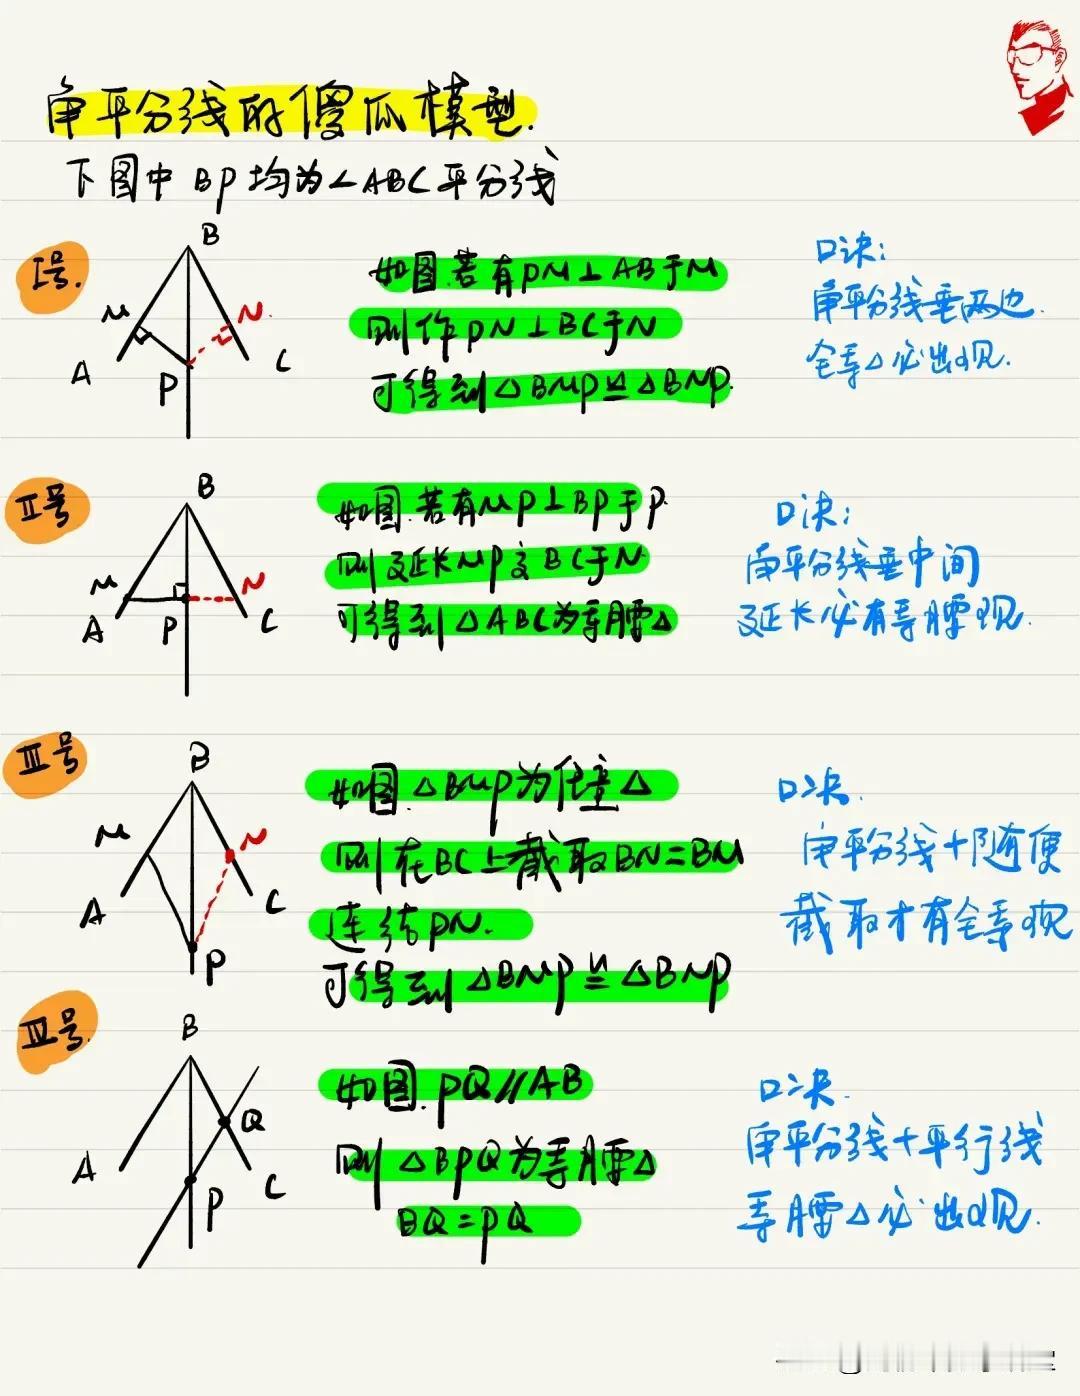 角平分线的傻瓜模型.
下图中BP均为∠ABC平分线
I号.
B
M
N
A
P
C
如图.若有PM⊥AB于M
则作PN⊥BC于N
可得到△BMP≌△BNP.
口诀:
角平分线垂两边.
全等△必出现.
II号
B
M
N
A
P
C
如图.若有MP⊥BP于P.
则延长MP交BC于N
可得到△ABC为等腰△
口诀:
角平分线垂中间
延长必有等腰现.
III号
B
M
N
A
C
P
如图.△BMP为任意△
则在BC上截取BN=BM
连结PN.
可得到△BMP≌△BNP
口诀.
角平分线+随便
截取才有全等现
IV号.
B
Q
A
P
C
如图.PQ//AB
则△BPQ为等腰△
BQ=PQ
口诀.
角平分线+平行线
等腰△必出现.